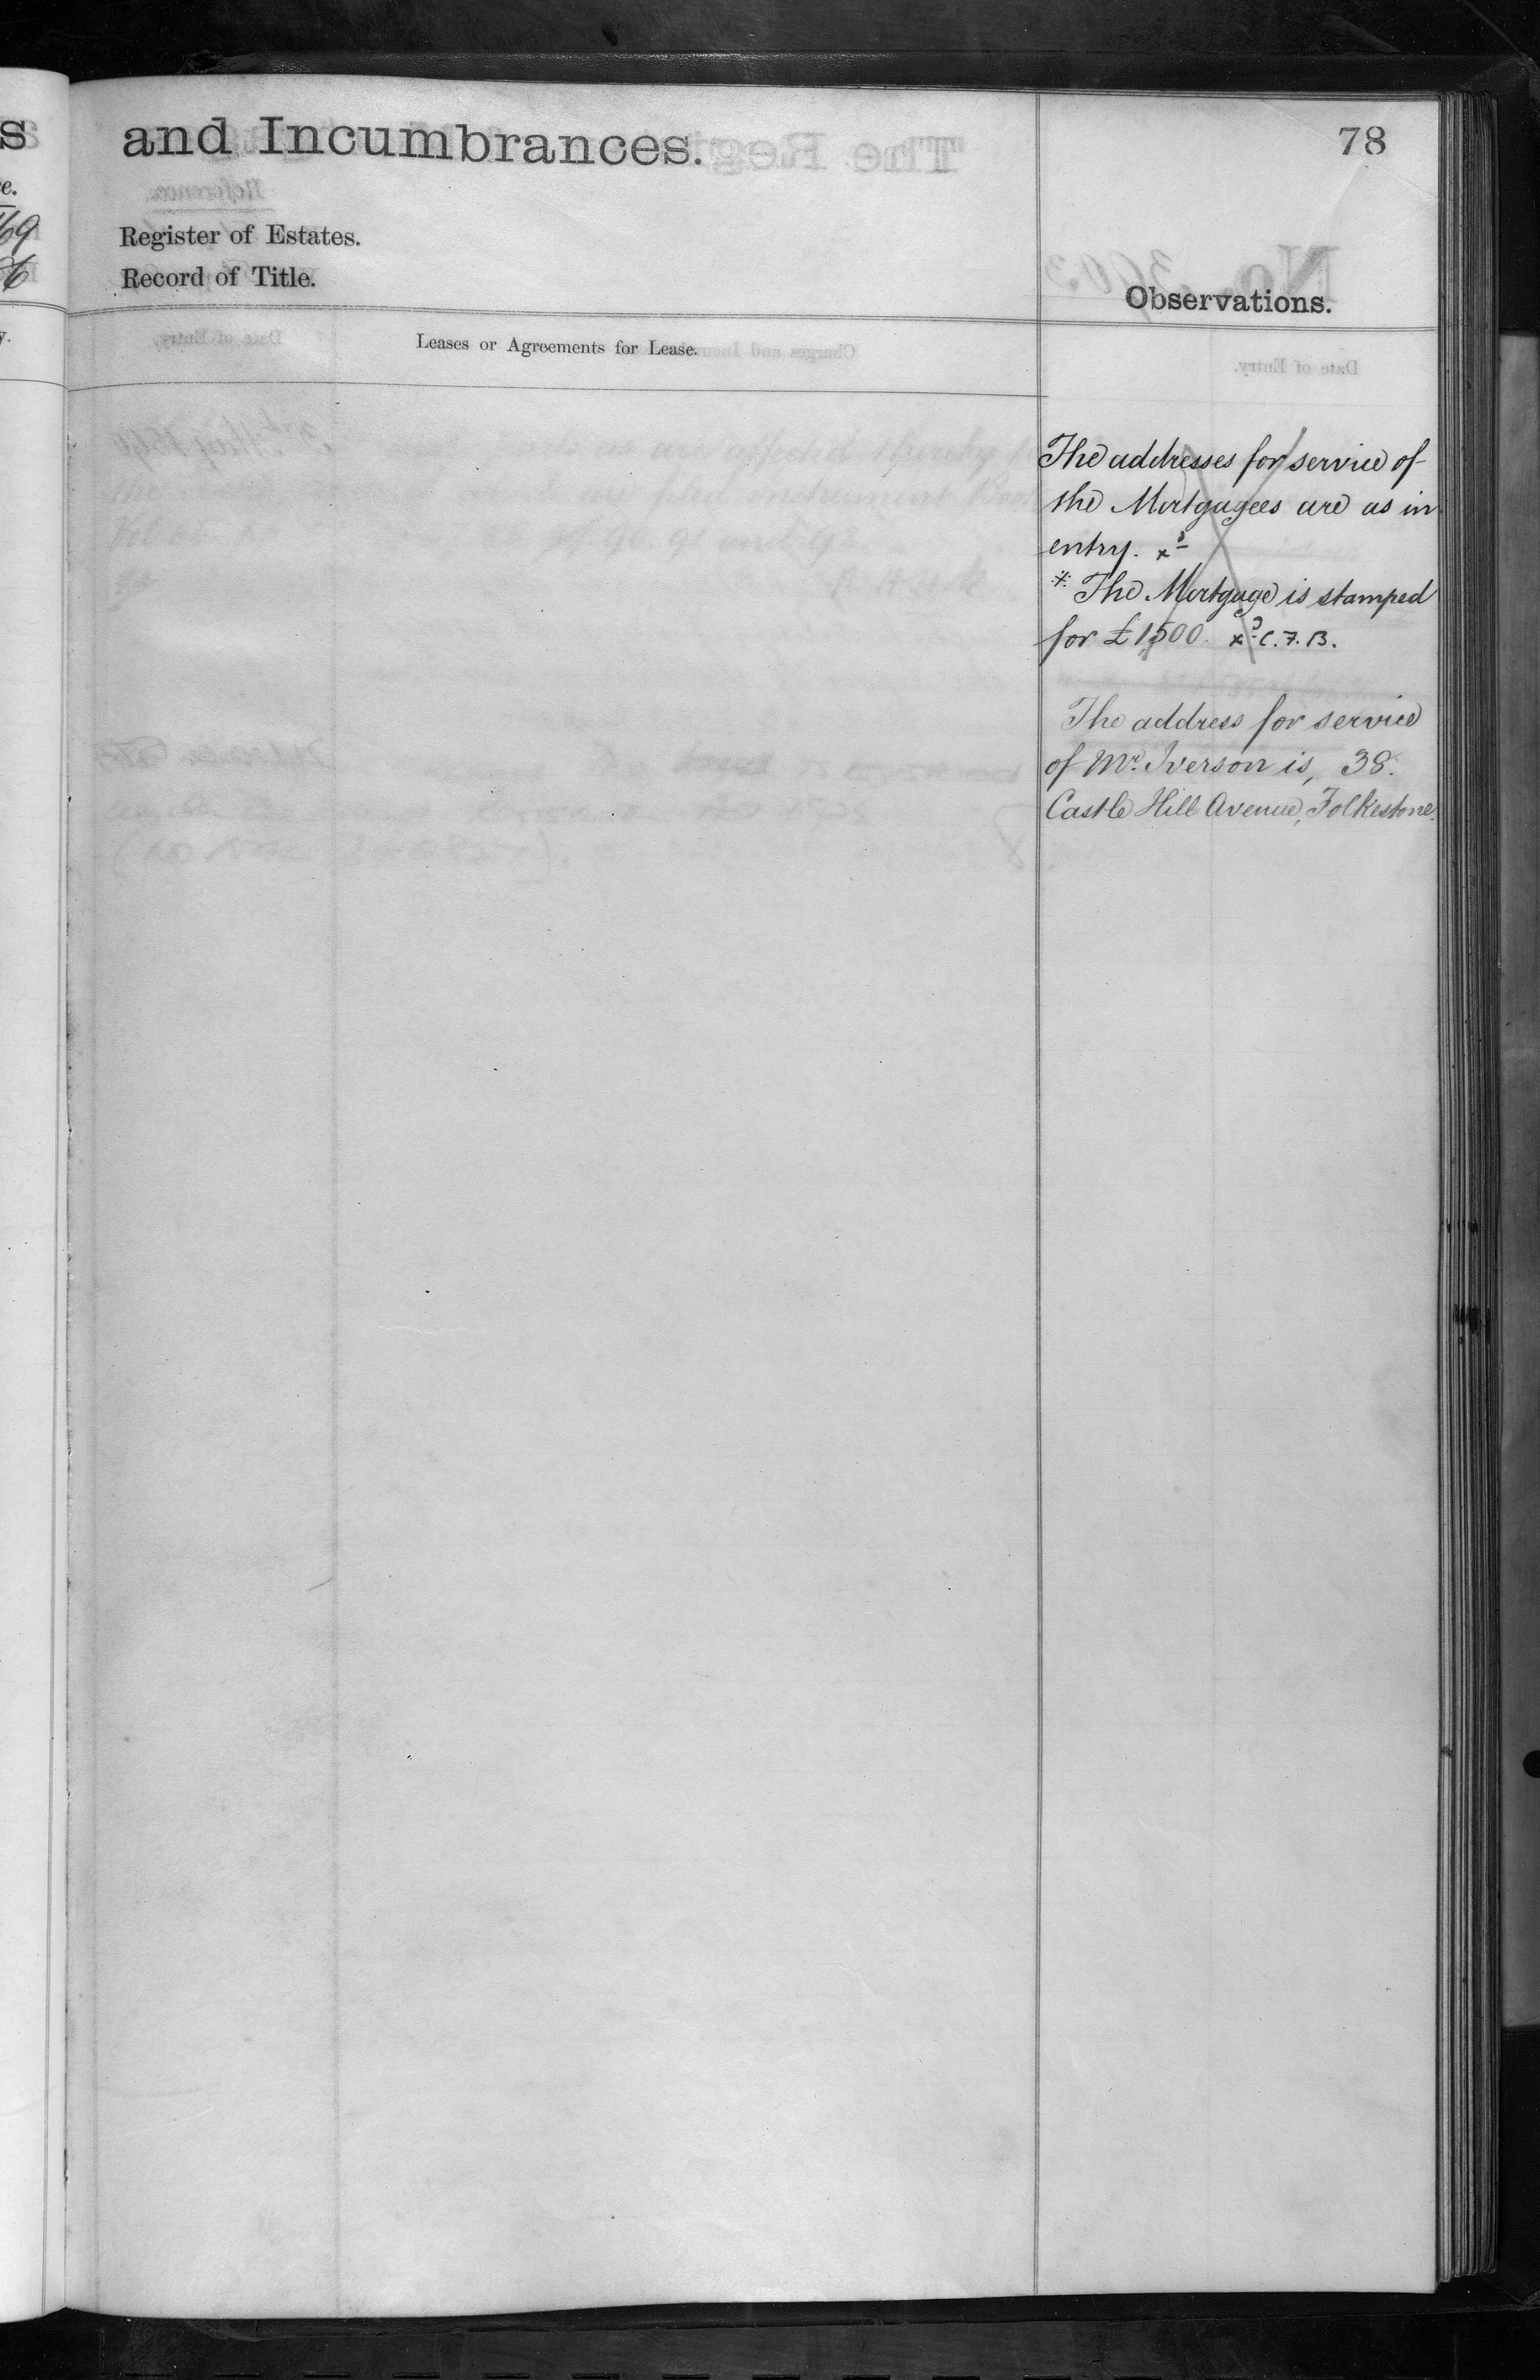 and Incumbrances.
78
Register of Estates.
Record of Title.
Observations.
Leases or Agreements for Lease.
The addresses for service of
the Mortgagees are as in
entry.
* The Mortgage is stamped
for £1,500. C.F.B.
The address for service
of Mr. Iverson is, 38.
Castle Hill Avenue, Folkestone.